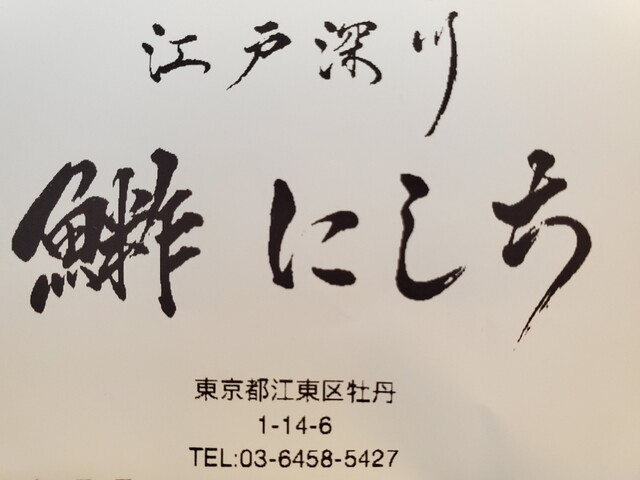 江戸深川
鮓 にしち
東京都江東区牡丹
1-14-6
TEL:03-6458-5427